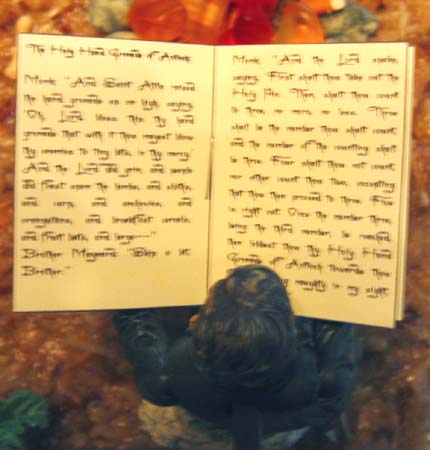 The Holy Hand Grenade of Antioch
Monk: "And Saint Atila raised
the hand grenade up on high, saying,
'Oh, Lord, bless this thy hand
grenade that with it thou mayest blow
thy enemies to tiny bits, in thy mercy.'
And the Lord did grin, and people
did feast upon the lambs, and sloths,
and carp, and anchovies, and
orangutans, and breakfast cereals,
and fruit bats, and large---"
Brother Maynard: "Skip a bit
Brother."
Monk: "And the Lord spake,
saying, 'First shalt thou take out the
Holy Pin. Then, shalt thou count
to three, no more, no less. Three
shall be the number thou shalt count,
and the number of the counting shall
be three. Four shalt thou not count,
nor either count thou two, excepting
that thou then proceed to three. Five
is right out. Once the number three,
being the third number, be reached,
then lobbest thou thy Holy Hand
Grenade of Antioch towards thou
naughty in my sight,